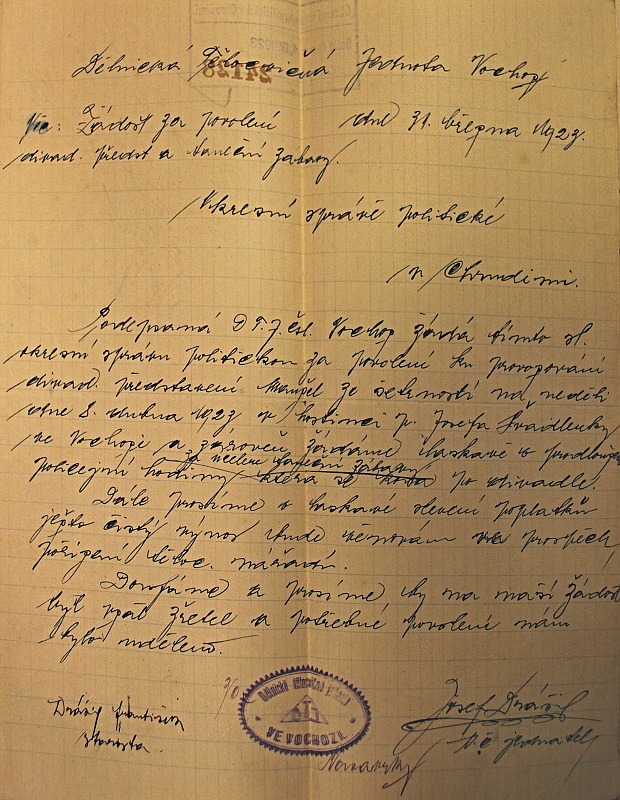 Dělnická Tělocvičná Jednota Vochoz
24128
Věc: Žádost za povolení dne 31. března 1923.
divad. předst a taneční zábavy.
Okresní správě politické
v Chrudimi.
Podepsaná D T. J. čsl. Vochoz žádá tímto sl.
okresní správu politickou za povolení ku provozování
divad. představení Manžel ze šetrnosti na neděli
dne 8. dubna 1923 v hostinci p. Josefa Švadlenky
ve Vochozi a zároveň žádáme laskavě o prodloužení
za účelem taneční zábavy
policejní hodiny která se koná po divadle.
Dále prosíme o laskavé slevení poplatků
ježto čistý výnos bude věnován ve prospěch
pořízení těloc. nářadí.
Doufáme a prosíme by na naši žádost
byl vzat zřetel a potřebné povolení nám
bylo uděleno.
Dělnická tělocvičná jednota
DTJ
VE VOCHOZI.
Drážil František
starosta.
Josef Drážil
t. č. jednatel